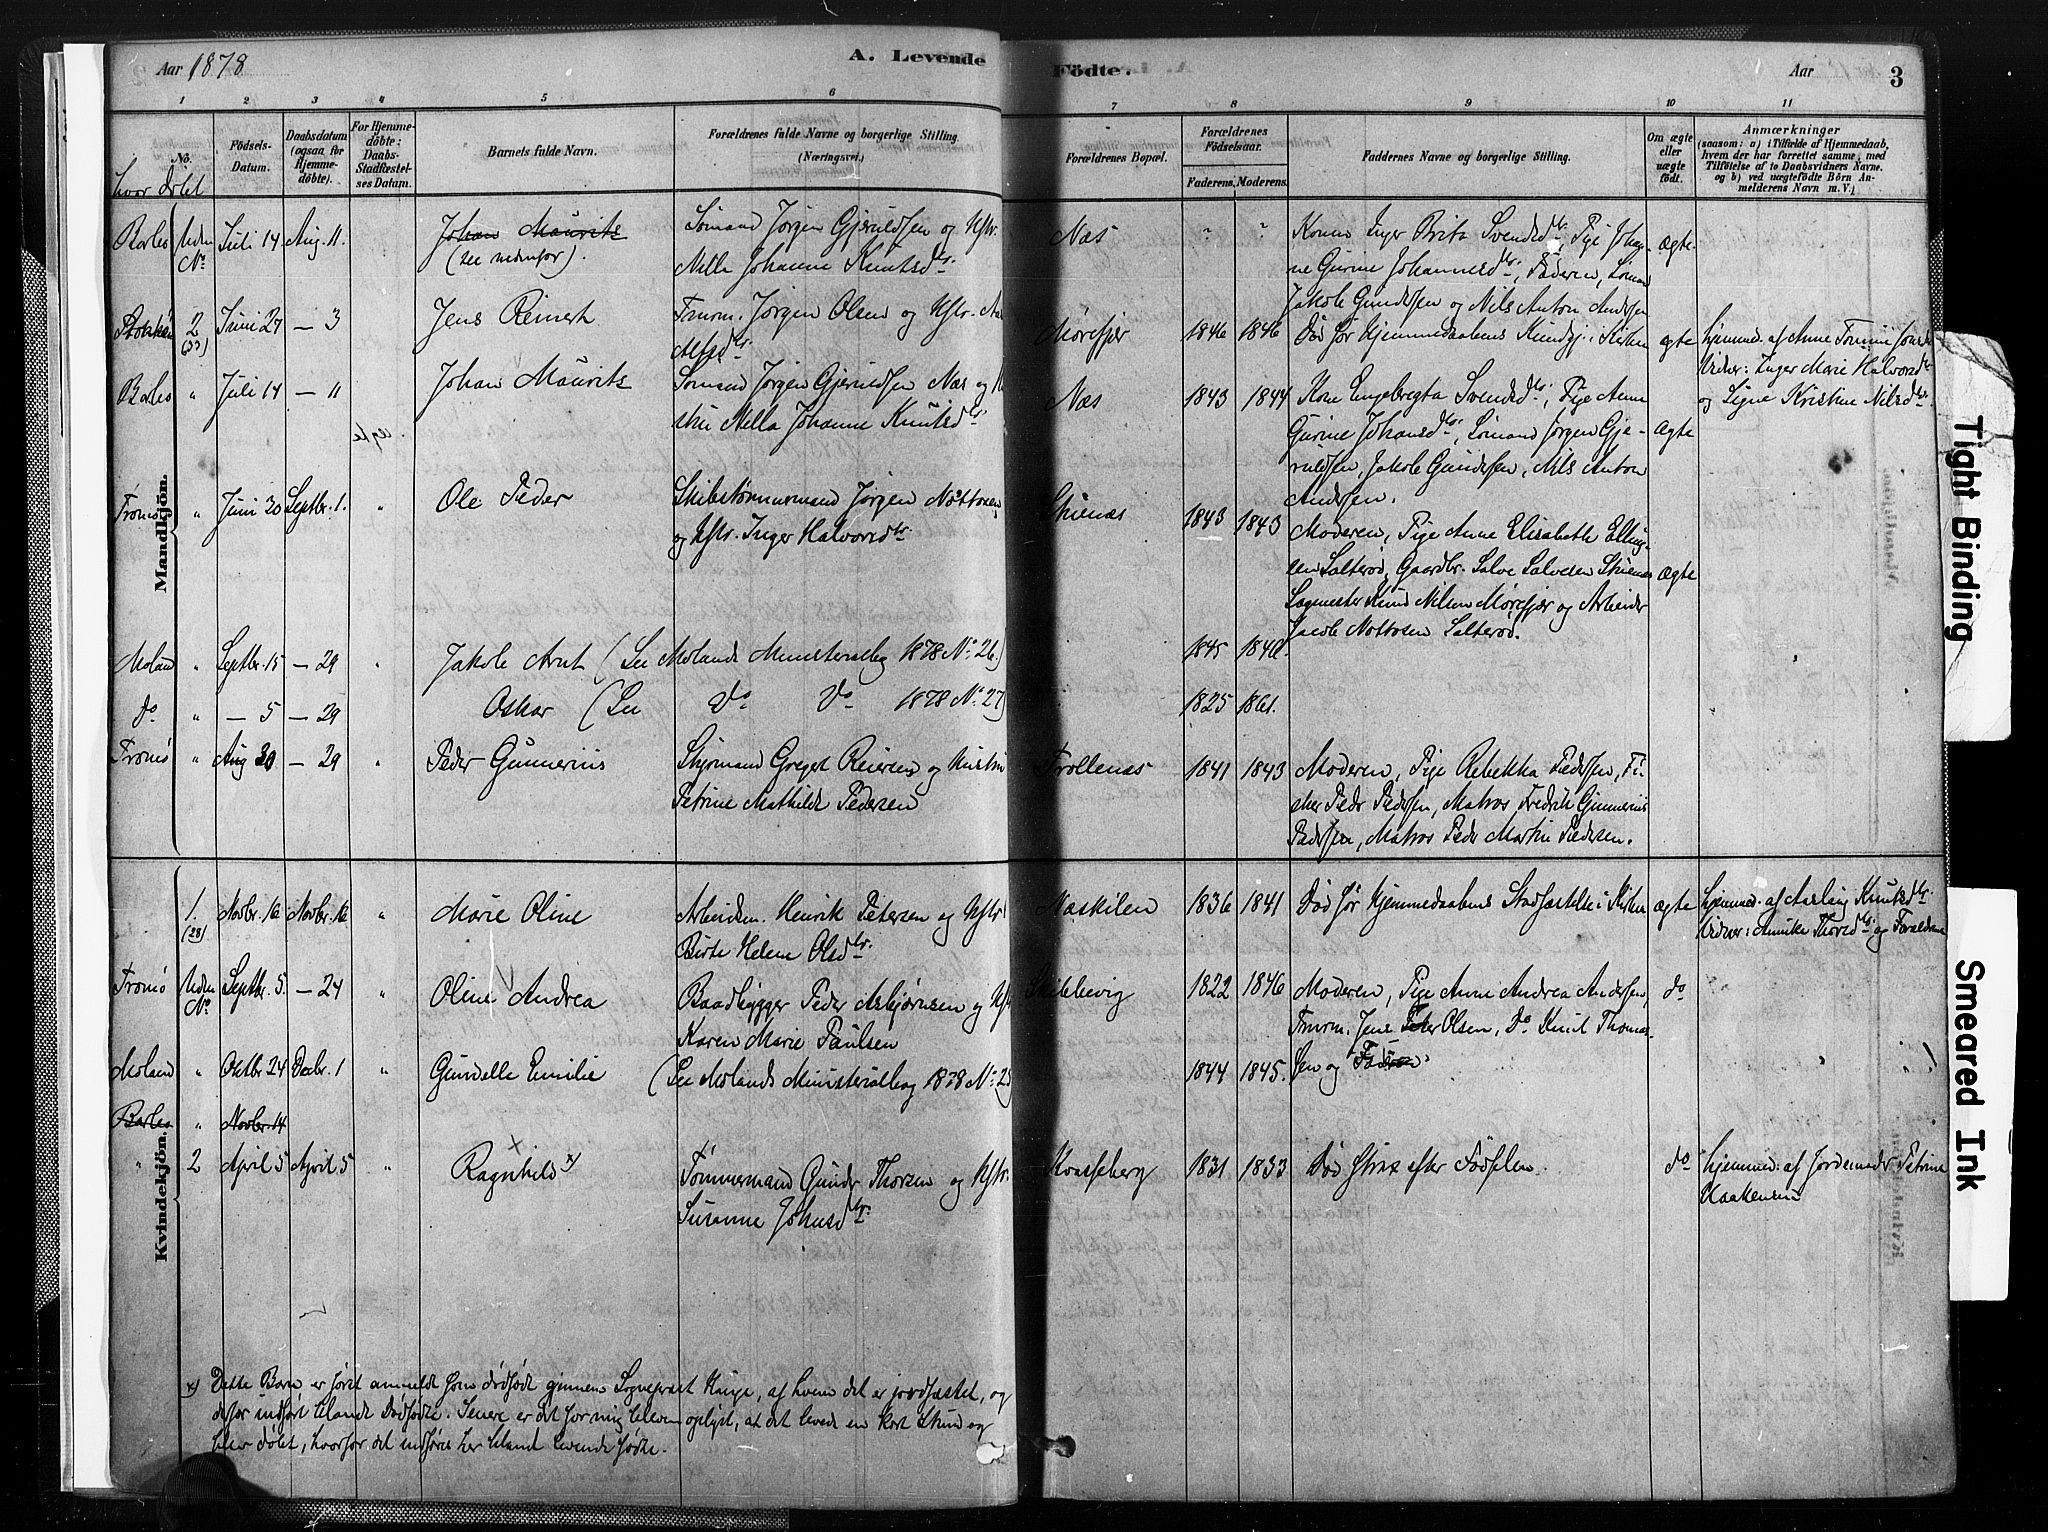 Aar 1878
A. Levende
Födte.
Aar
3
1 2 3 4 5 6 7 8 9 10 11
No.
hvor döbt
Födsels-
Datum.
Daabsdatum
(ogsaa for
Hjemme-
döbte).
For Hjemme-
döbte:
Daabs-
Stadfæstel-
ses Datum.
Barnets fulde Navn.
Forældrenes fulde Navne og borgerlige Stilling.
(Næringsvei.)
Forældrenes Bopæl.
Forældrenes
Födselsaar.
Faderens. Moderens.
Faddernes Navne og borgerlige Stilling.
Om ægte
eller
uægte
födt.
Anmærkninger
(saasom: a) i Tilfælde af Hjemmedaab,
hvem der har forrettet samme, med
Tilföielse af to Daabsvidners Navne.
og b) ved uægtefödte Börn An-
melderens Navn m. V.)
Mandkjön.
Uden
No
Juli 14
Aug. 11.
Johan Maurits
(see nedenfor).
Sömand Jörgen Gjeruldsen og Hstr.
Nella Johanne Knutsdtr.
Næs
" "
Konen Inger Brita Svendsdtr., Pige Johan-
ne Gurine Johannesdtr., Faderen, Sömand
Jakob Gundersen og Nils Anton Andersen
ægte
2
Juni 27
— 3
Jens Reinert
Tmrm. Jörgen Olsen og Hstr.
Alfsdtr.
Mörefjær
1846 1846
Död för Hjemmedaabens Kundgj. i Kirken
ægte
Hjemmed. af Anne Tomine
Vidner: Inger Marie Halvorsdtr.
og Signe Kristine Nilsdtr.
"
Juli 14
— 11
Johan Maurits
Sömand Jörgen Gjeruldsen Næs og
Nella Johanne Knutsdtr.
ægte
Næs
1843 1844
Kone Engebregta Svendsdtr., Pige Anne
Gurine Johansdtr., Sömand Jörgen Gje-
ruldsen, Jakob Gundersen, Nils Anton
Andersen.
ægte
Tromö
"
Juni 30
Septbr. 1.
"
Ole Peder
Skibstömmermand Jörgen Nottosen
og Hstr. Inger Halvorsdtr.
Skienæs
1843 1843
Moderen, Pige Anne Elisabeth Elling-
sen Salteröd, Gaardbr. Salve Salvesen Skienæs
Knud Nilsen Mörefjær og Arbeider
Jacob Nottosen Salteröd.
ægte
Moland
"
Septbr. 15
— 29
"
Jakob Arnt (See Molands Ministerialbog 1878 No. 26)
1845 1846.
do
"
— 5
— 29
Oskar (See do do 1878 No. 27)
1825 1861.
Tromö
"
Aug 20
— 29
"
Peder Gunnerius
Greget Reiersen og Hustru
Petrine Mathilde Pedersen
Trollenæs
1841 1843
Moderen, Pige Rebekka Pedersen, Fi-
sker Peder Pedersen, Matros Fredrik Gunnerius
Pedersen, Matros Peder Martin Pedersen.
Kvindekjön.
1.
(28)
Novbr. 16
Novbr. 16
"
Marie Oline
Arbeidsm. Henrik Petersen og Hstr.
Birte Helene Olsdtr.
Naskilen
1836 1841
Död för Hjemmedaabens Stadfæstelse i Kirken
ægte
Hjemmed. af Aslaug Knutsdtr.
Vidner: Annike Thorsdtr. og Forældrene
Tromö
Uden
No
Septbr. 5.
— 24
"
Oline Andrea
Baadbygger Peder Asbjörnsen og Hstr
Karen Marie Paulsen
Skibbevig
1822 1846
Moderen, Pige Anne Andrea Andersen,
Tmrm. Jens Peter Olsen, do Knut Thomas-
sen og Faderen
do
Moland
"
Oktbr. 24
Decbr. 1
"
Gundelle Emilie
(See Molands Ministerialbog 1878 No. 25)
1844 1845.
"
Novbr. 14
" 2
April 5
April 5
"
Ragnhild x)
Tömmermand Gunder Thorsen og Hstr.
Susanne Johnsdtr.
Kvasseberg
1831 1833
Död strax efter Födslen.
do
Hjemmed. af Jordemoder Petrine
Haakensen
x) Dette Barn er först anmeldt som dödfödt gjennem Sognepræst Kinge, af hvem det er jordfæstet, og
derfor indfört blandt Dödfödte. Senere er det for mig bleven oplyst, at det levede en kort Stund og
blev döbt, hvorfor det indföres her blandt levende födte.
Tight Binding
Smeared Ink